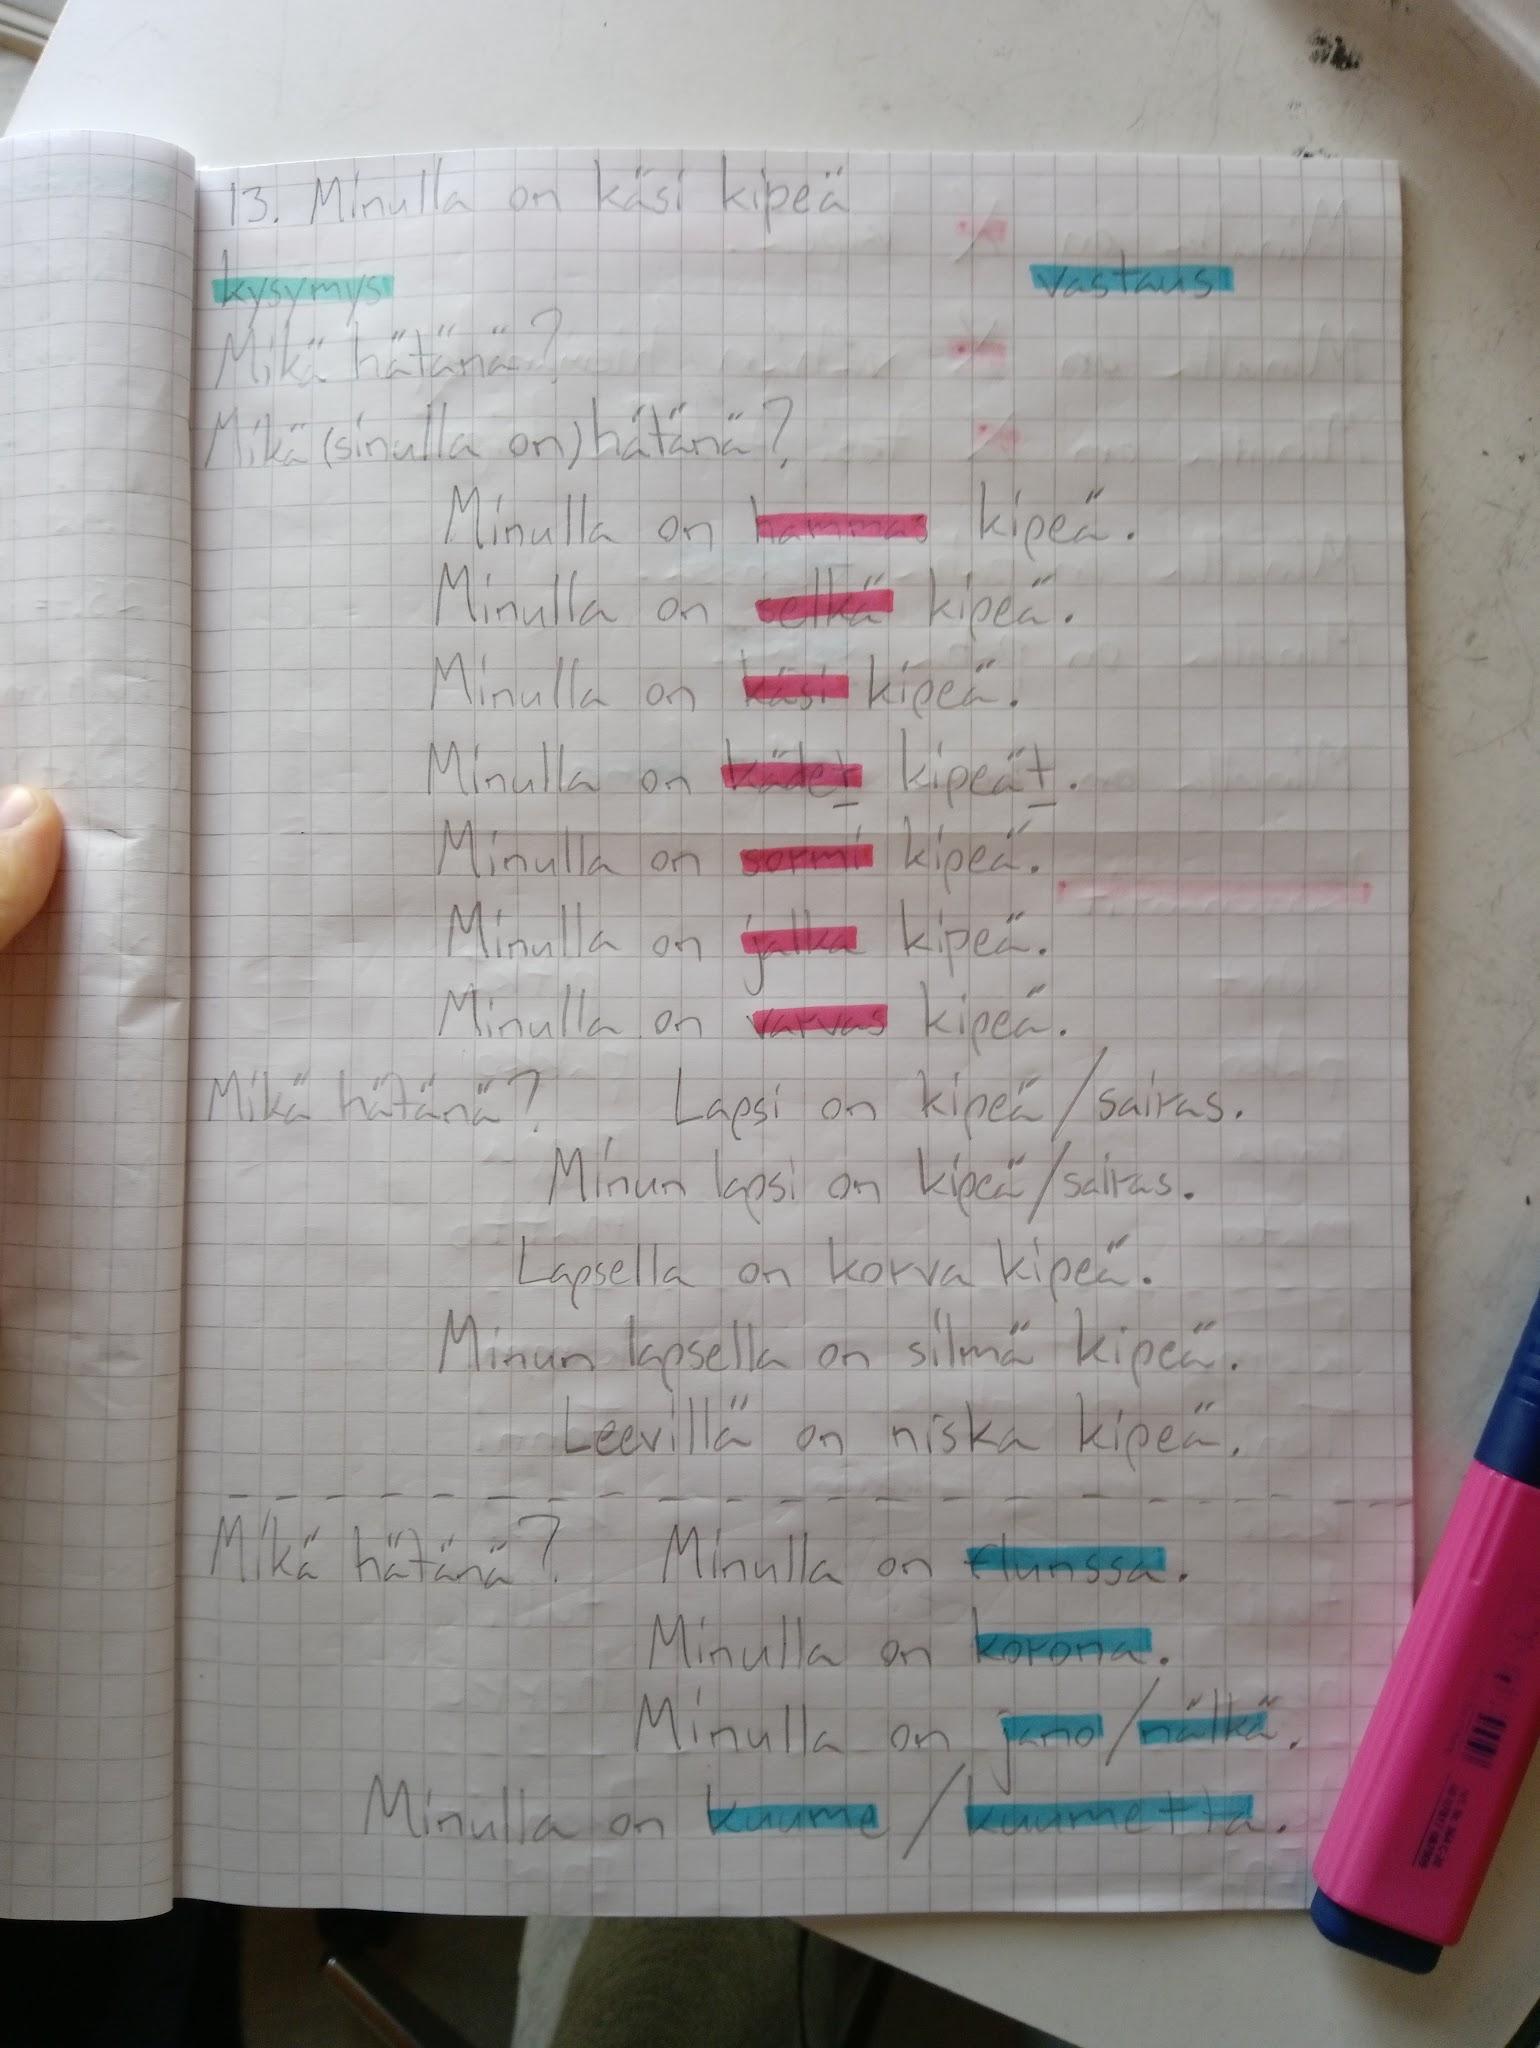 13. Minulla on käsi kipeä
kysymys vastaus
Mikä hätänä?
Mikä (sinulla on) hätänä?
Minulla on hammas kipeä.
Minulla on selkä kipeä.
Minulla on käsi kipeä.
Minulla on kädet kipeät.
Minulla on sormi kipeä.
Minulla on jalka kipeä.
Minulla on varvas kipeä.
Mikä hätänä? Lapsi on kipeä/sairas.
Minun lapsi on kipeä/sairas.
Lapsella on korva kipeä.
Minun lapsella on silmä kipeä.
Leevillä on niska kipeä.
Mikä hätänä? Minulla on flunssa.
Minulla on korona.
Minulla on jano/nälkä.
Minulla on kuume/kuumetta.